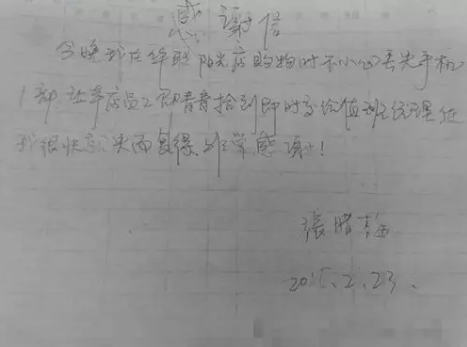 感谢信
今晚我在华联阳光店购物时不小心丢失手机
1部,被贵店员工 青青拾到即时交给值班经理使
我很快 失而复得,非常感谢!
張 
2015.2.23.